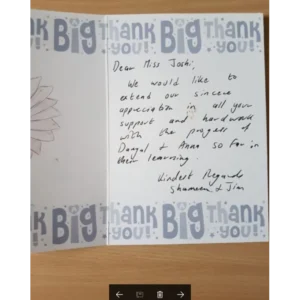 BIG Thank you! BIG Thank you!
Dear Miss Joshi,
We would like to
extend our sincere
appreciation in all your
support and hardwork
with the progress of
& Anna so far in
their learning.
Kindest Regards
& Jim
BIG Thank you! BIG Thank you!